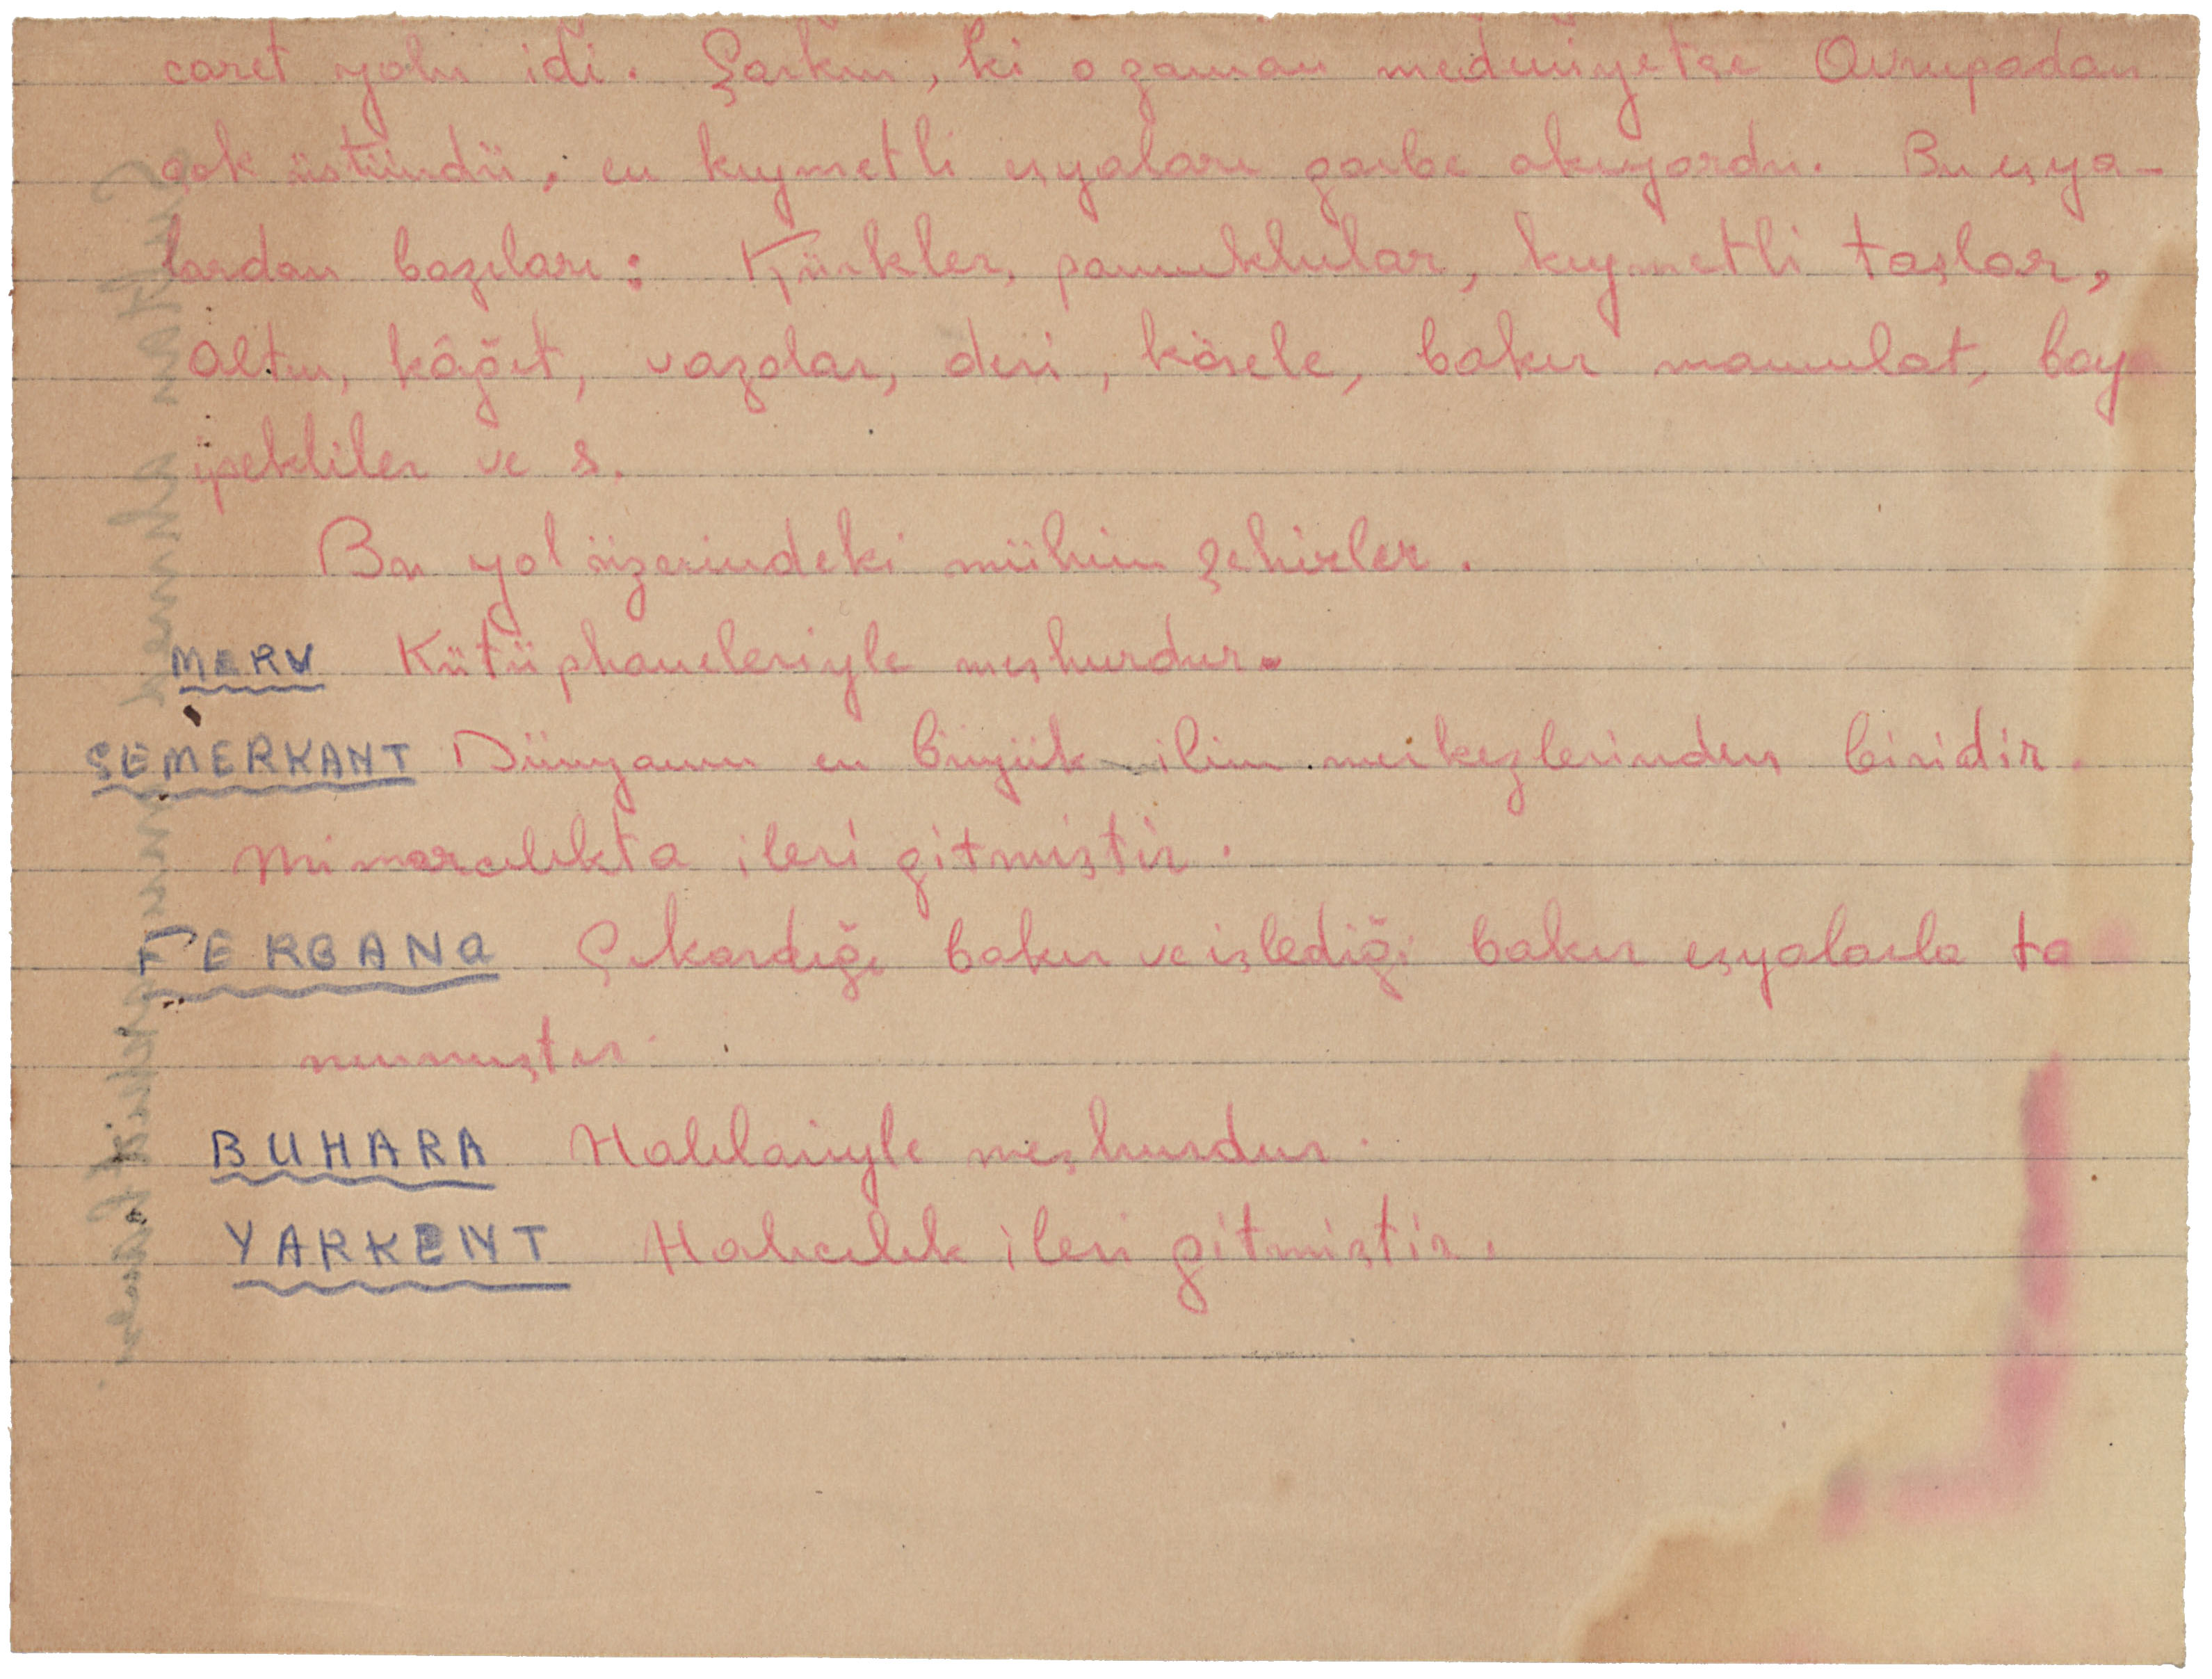 caret yolu idi. Şarkın, ki o zaman medeniyetçe Avrupadan
çok üstündü, en kıymetli eşyaları garbe akıyordu. Bu eşya-
lardan bazıları: Kürkler, pamuklular, kıymetli taşlar,
altın, kâğıt, vazolar, deri, kösele, bakır mamulat,
ipekliler ve s.
Bu yol üzerindeki mühim şehirler.
MERV Kütüphaneleriyle meşhurdur.
SEMERKANT Dünyanın en büyük ilim merkezlerinden biridir.
Mimarcılıkta ileri gitmiştir.
FERGANA Çıkardığı bakır ve işlediği bakır eşyalarla ta
nınmıştır.
BUHARA Halılariyle meşhurdur.
YARKENT Halıcılık ileri gitmiştir.